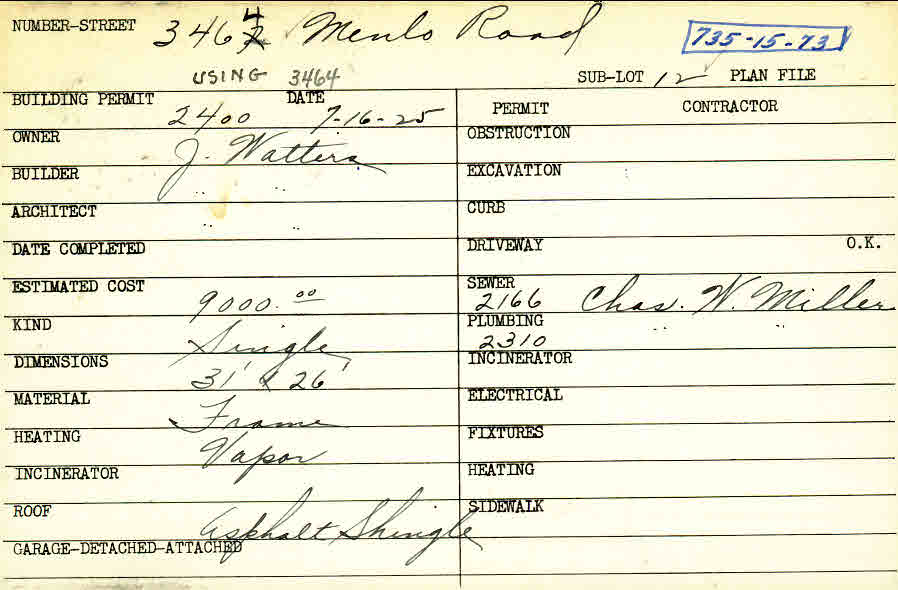 NUMBER-STREET 3464 Menlo Road 735-15-73
USING 3464 SUB-LOT 12 PLAN FILE
BUILDING PERMIT 2400 DATE 7-16-25
PERMIT CONTRACTOR
OWNER J. Watters
BUILDER " "
ARCHITECT " "
DATE COMPLETED
ESTIMATED COST 9000.00
KIND Single
DIMENSIONS 31' x 26'
MATERIAL Frame
HEATING Vapor
INCINERATOR
ROOF Asphalt Shingle
GARAGE-DETACHED-ATTACHED
OBSTRUCTION
EXCAVATION
CURB
DRIVEWAY O.K.
SEWER 2166 Chas. W. Miller
PLUMBING 2310 " "
INCINERATOR
ELECTRICAL
FIXTURES
HEATING
SIDEWALK